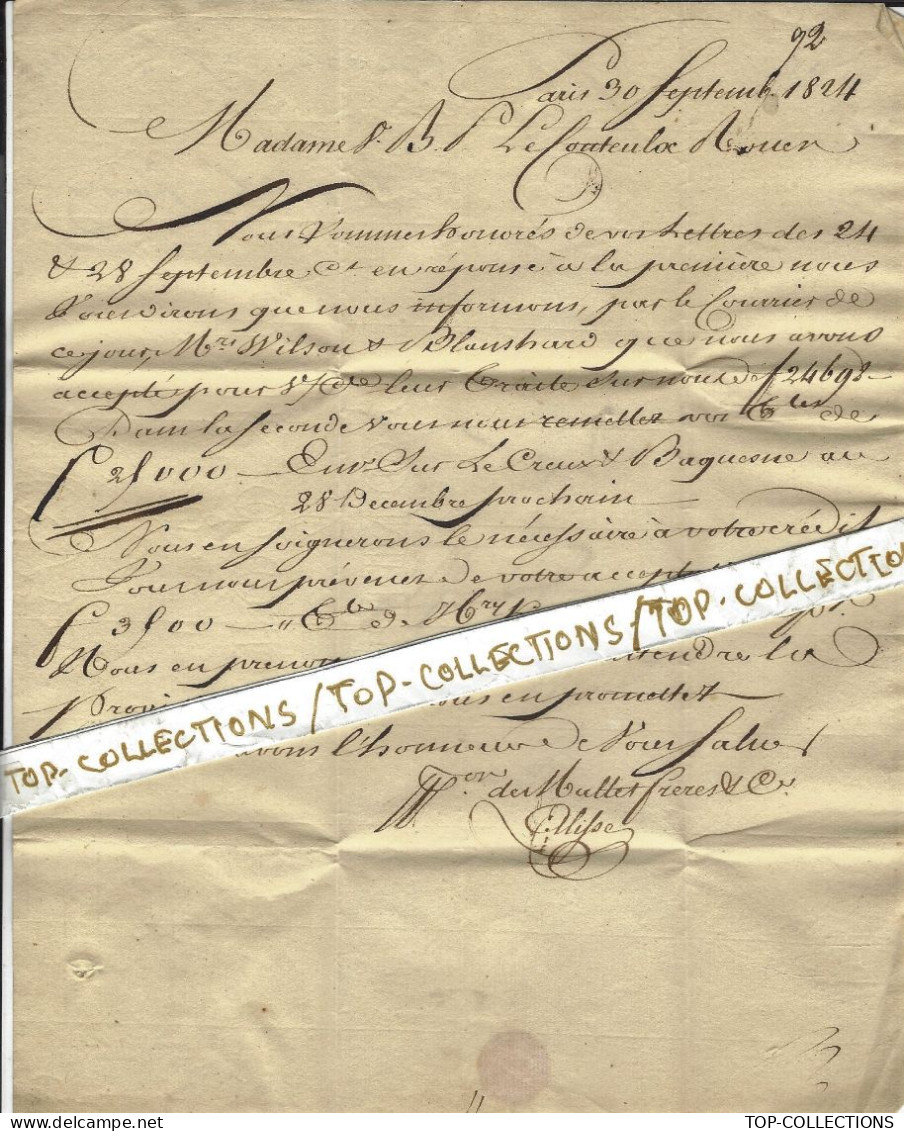 92
Paris 30 Septemb. 1824
Madame V. B. P. Le Couteulx Rouen
Nous sommes honorés de vos Lettres des 24
& 28 Septembre Ct. en réponse à la première nous
vous dirons que nous informons, par le Courrier de
ce jour, Mrs. Wilson & Blanshard que nous avons
accepté pour V/ Cte leur Traite sur nous de f 24698-
Dans la seconde vous nous remettez vos Effets de
f 25000 - Env. Sur Le Creux & Baquesne au
28 Decembre prochain
Nous en soignerons le nécessaire à votre crédit
Vous nous prévenez de votre
f 3500 - " Cte de
Nous en
en promettez
l'honneur de Vous saluer
Pon. de Mallet frères & Ce.
TOP-COLLECTIONS / TOP-COLLECTIONS / TOP-COLLECTION
TOP-COLLECTIONS